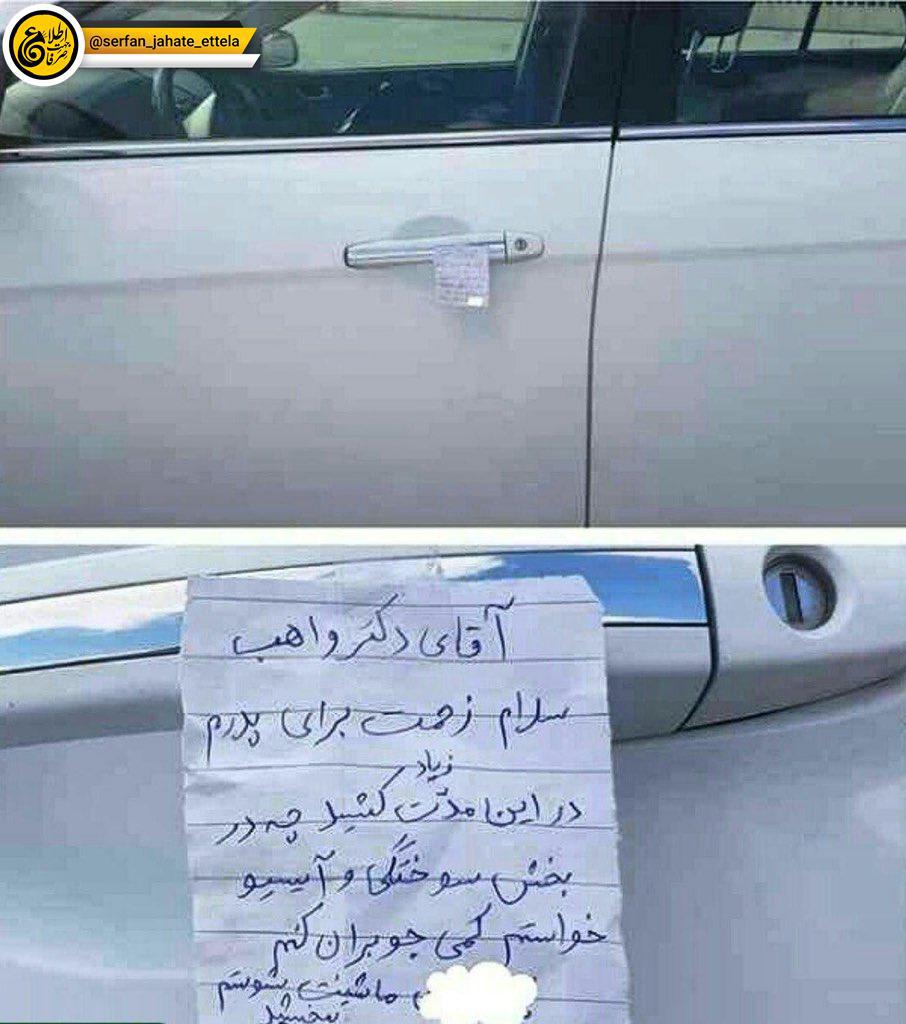 صرفا جهت اطلاع
@serfan_jahate_ettela
آقای دکتر واهب
سلام زحمت برای پدرم
زیاد
در این مدت کشید چه در
بخش سوختگی و آیسیو
خواستم کمی جوبران کنم
ماشینت بشوستم
ببخشید